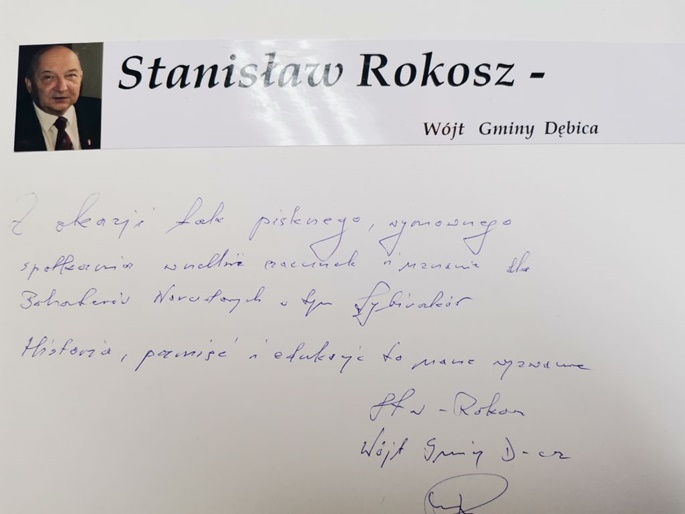 Stanisław Rokosz -
Wójt Gminy Dębica
Z okazji tak pięknego, wymownego
spotkania szacunek i uznanie dla
Bohaterów Narodowych w tym Sybiraków
Historia, pamięć i edukacja to nasze wyzwanie
St w - Rokosz
Wójt Gminy D-ca